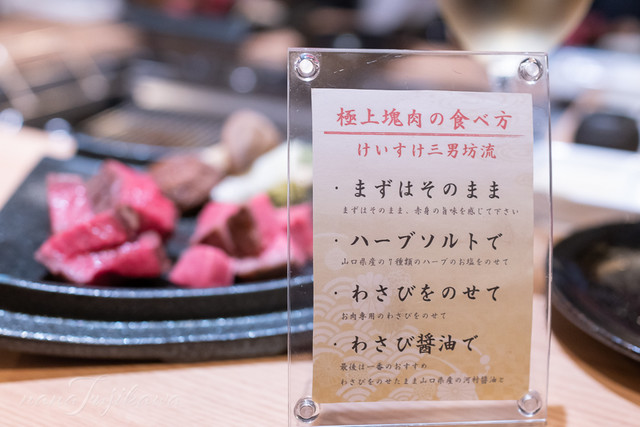 極上塊肉の食べ方
けいすけ三男坊流
・まずはそのまま
まずはそのまま、赤身の旨味を感じて下さい
・ハーブソルトで
山口県産の7種類のハーブのお塩をのせて
・わさびをのせて
お肉専用のわさびをのせて
・わさび醤油で
最後は一番のおすすめ
わさびをのせたまま山口県産の河村醤油で